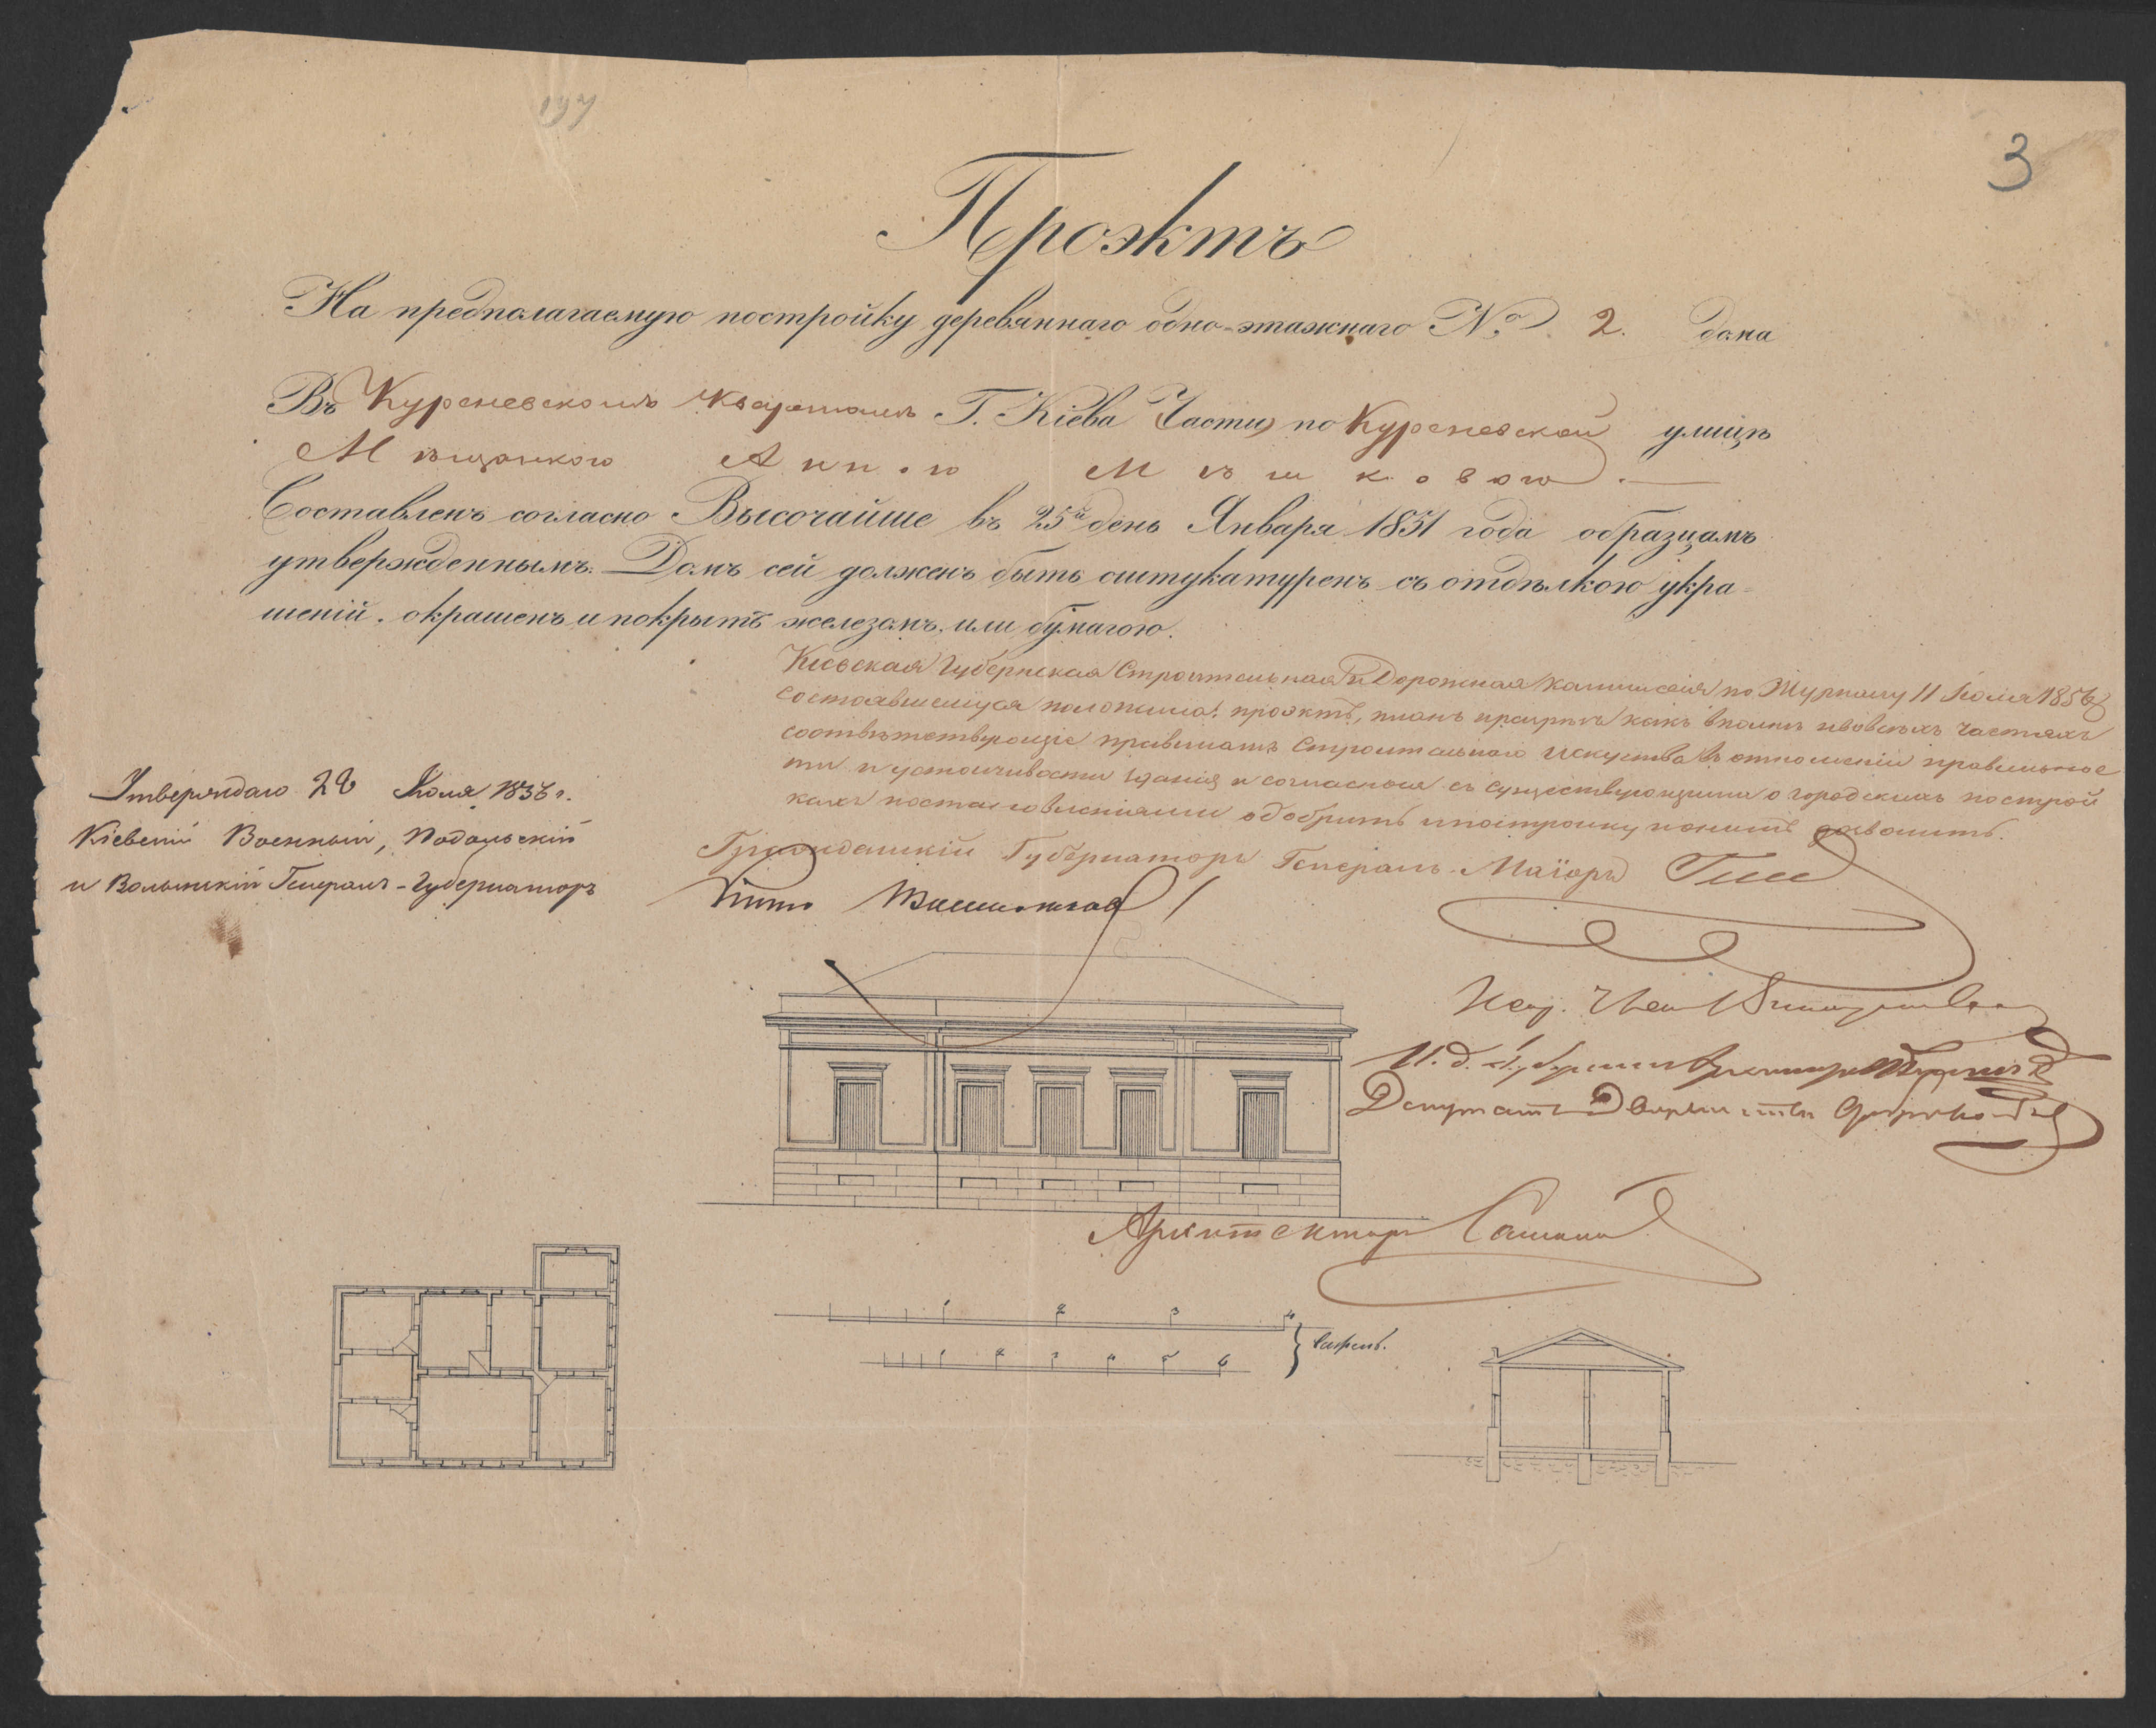 197
3
Проэктъ
На предполагаемую постройку деревяннаго одно-этажнаго №. 2. дома
Въ Куреневскомъ кварталѣ Г. Кіева Части, по Куреневской улицѣ
Мѣщанкою Анною Мѣшковою.
Составленъ согласно Высочайше въ 25й день Января 1851 года образцамъ
утвержденнымъ. Домъ сей долженъ быть оштукатуренъ съ отдѣлкою укра-
шеній. окрашенъ и покрытъ железомъ, или бумагою.
Кіевская Губернская Строительная и Дорожная Коммисія по Журналу 11 Іюля 1856
состоявшемуся положила: проэктъ, планъ
соотвѣтствующіе правиламъ Строительнаго Искуства въ отношеніи правильнос
ти и устойчивости зданія и согласные съ существующими о городскихъ построй
кахъ постановленіями одобрить и постройку дозволить.
Гражданскій Губернаторъ Генералъ-Маіоръ Гессе
Утверждаю 28 Іюля 1856 г.
Кіевскій Военный, Подольскій
и Волынскій Генералъ-Губернаторъ
И. д. Губернск Архитектора
Депутатъ Дворянства
Архитекторъ
1 2 3 4
1 2 3 4 5 6
Сажень.